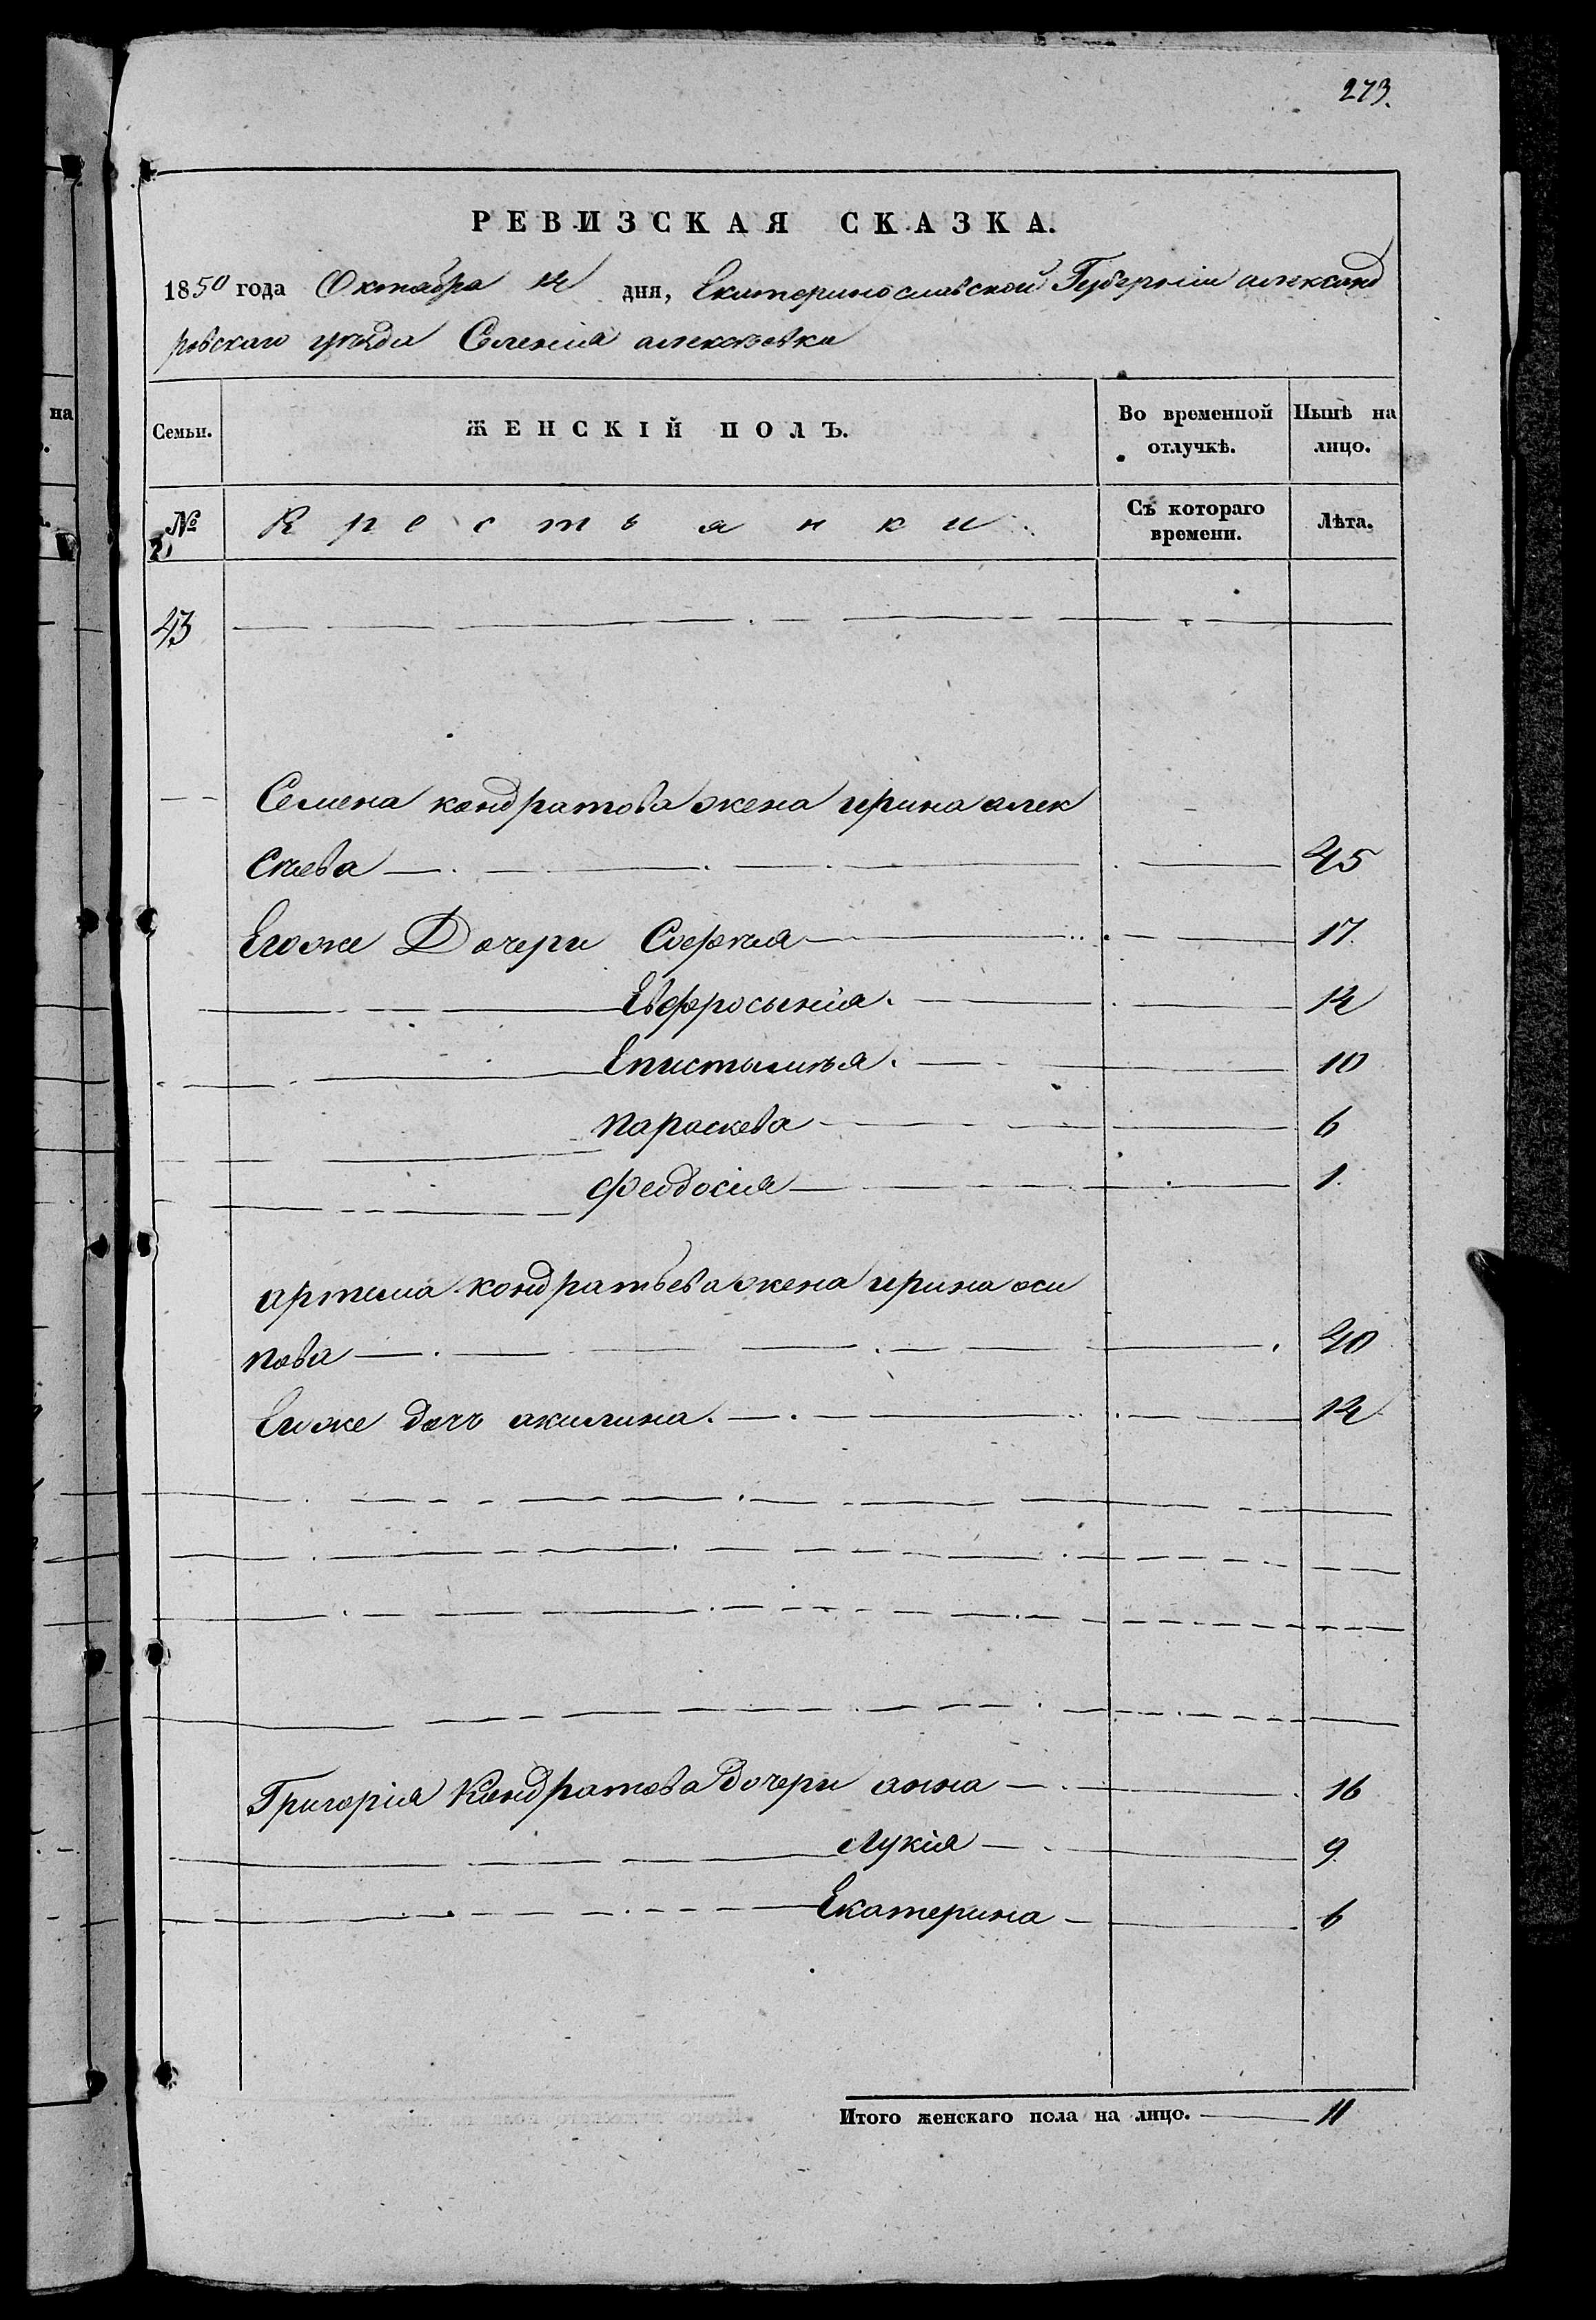 273.
РЕВИЗСКАЯ СКАЗКА.
1850 года Октября 14 дня, Екатеринославской Губерніи александ
ровскаго уѣзда Селенія алексѣевки
на
Семьи.
ЖЕНСКІЙ ПОЛЪ.
Во временной отлучкѣ.
Нынѣ на лицо.
№
Крестьянки
Съ котораго времени.
Лѣта.
43
Семена кондратова жена ирина алек
сѣева 45
Егоже Дочери Софѣя 17
Евфросынія. 14
Епистымѣя. 10
параскева 6
феодосія 1.
артема кондратьева жена ирина оси
пова 40
Егоже дочь акилина. 14
Григорія Кондратова Дочери анна 16
Лукія 9
Екатерина 6
Итого женскаго пола на лицо. 11